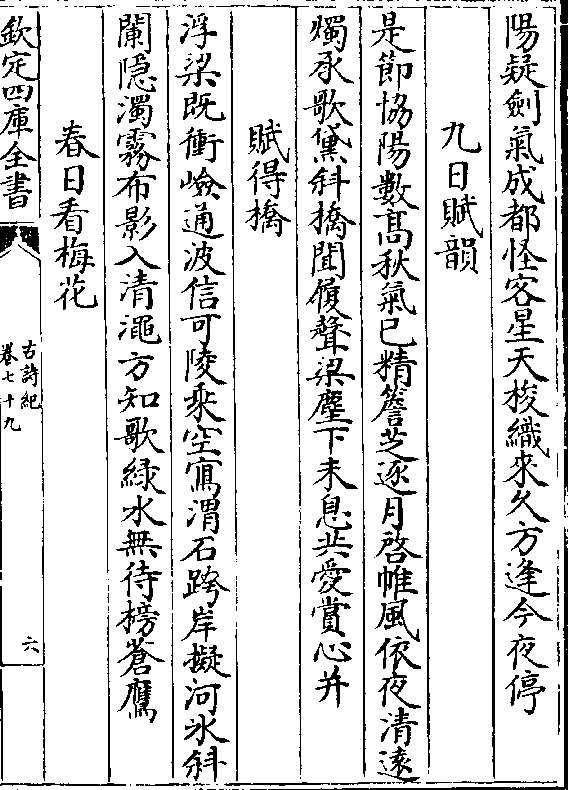 陽疑劍氣成都怪客星天梭織來久方逢今夜停
九日賦韻
是節協陽數髙秋氣已精簷芝逐月啓帷風依夜清逺
燭承歌黛斜橋聞履聲梁塵下未息共愛賞心并
賦得橋
浮梁既衝嶮通波信可陵乘空寫渭石跨岸擬河氷斜
闌隠濁霧布影入清澠方知歌緑水無待榜蒼鷹
春日看梅花
欽定四庫全書
古詩紀
卷七十九
六